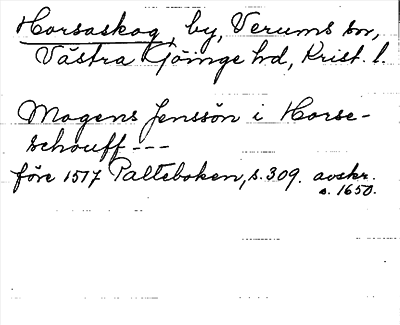 Horsaskog, by, Verums sn,
Västra Göinge hd, Krist. l.
Mogens Jenssön i Horse-
schouff ---
före 1517 Palteboken, s. 309. avskr.
s. 1650.